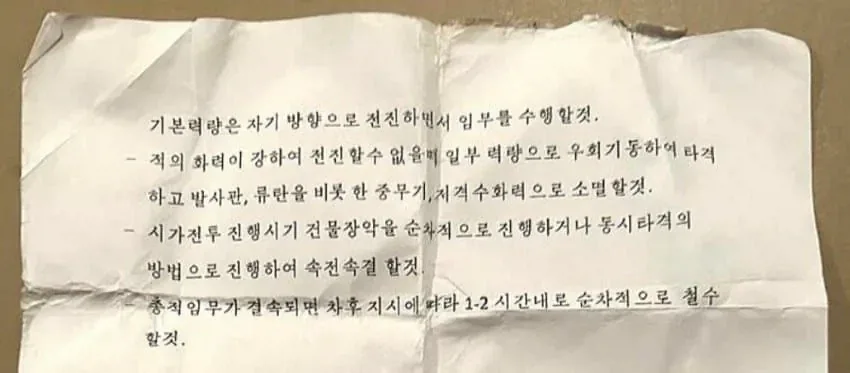 기본력량은 자기 방향으로 전진하면서 임무를 수행할것.
- 적의 화력이 강하여 전진할수 없을때 일부 력량으로 우회기동하여 타격
하고 발사판, 류탄을 비롯 한 중무기,저격수화력으로 소멸할것.
- 시가전투 진행시기 건물장악을 순차적으로 진행하거나 동시타격의
방법으로 진행하여 속전속결 할것.
- 총적임무가 결속되면 차후 지시에 따라 1-2 시간내로 순차적으로 철수
할것.